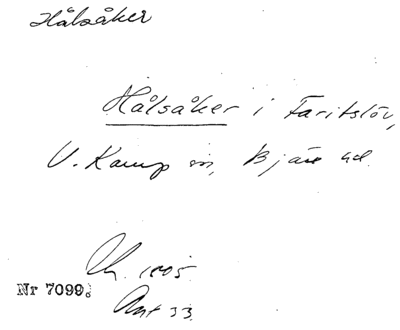 Hålsåker
Hålsåker i Faritslöv,
V. Karup sn, Bjäre hd.
Ch. 1805.
Nr 7099. Akt 33.